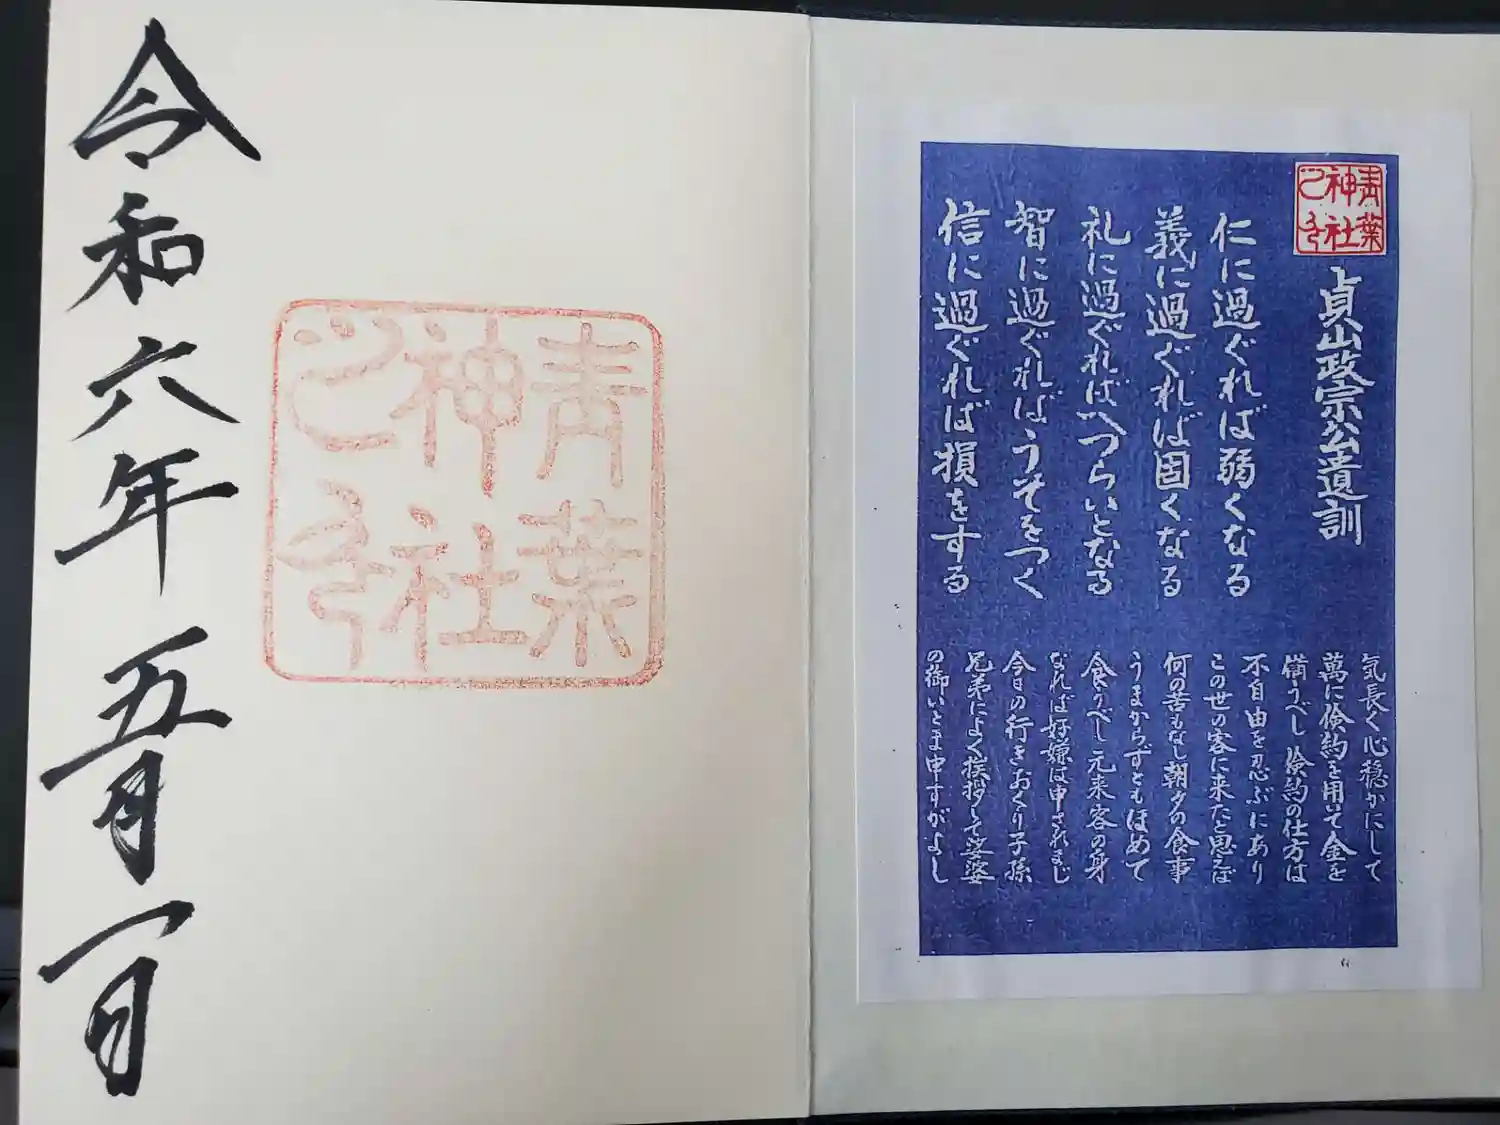 青葉
神社
之印
貞山政宗公遺訓
仁に過ぐれば弱くなる
義に過ぐれば固くなる
礼に過ぐればへつらいとなる
智に過ぐればうそをつく
信に過ぐれば損をする
気長く心穏かにして
萬に倹約を用いて金を
備うべし 倹約の仕方は
不自由を忍ぶにあり
この世の客に来たと思えば
何の苦もなし朝夕の食事
うまからずともほめて
食うべし 元来客の身
なれば好嫌は申されまじ
今日の行きおくり子孫
兄弟によく挨拶して娑婆
の御いとま申すがよし
青葉
神社
之印
令和六年 五月 一日